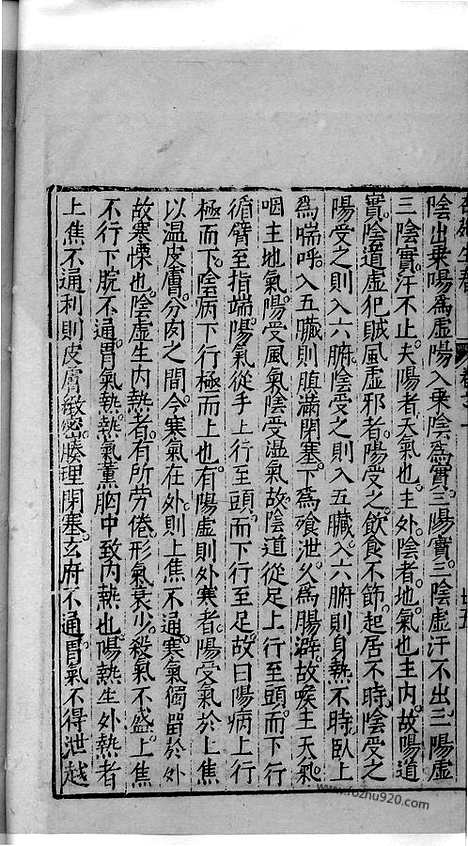 陰出乗陽爲虛陽入乗陰爲實三陽實三陰虛汗不出三陽虛
三陰實汗不止夫陽者天氣也主外陰者地氣也主内故陽道
實陰道虛犯賊風虛邪者陽受之飲食不節起居不時陰受之
陽受之則入六腑陰受之則入五臟入六腑則身熱不時臥上
爲喘呼入五臟則䐜滿閉塞下爲飱泄乆爲腸澼故喉主天氣
咽主地氣陽受風氣陰受濕氣故陰道從足上行至頭而下行
循臂至指端陽氣從手上行至頭而下行至足故曰陽病上行
極而下陰病下行極而上也有陽虛則外寒者陽受氣於上焦
以温皮膚分肉之間今寒氣在外則上焦不通寒氣獨留於外
故寒慄也陰虛生内熱者有所劳倦形氣衰少殺氣不盛上焦
不行下脘不通胃氣熱熱氣薰胸中致内熱也陽熱生外熱者
上焦不通利則皮膚緻密䐮理閉塞玄府不通胃氣不得泄越
www.fozhu920.com